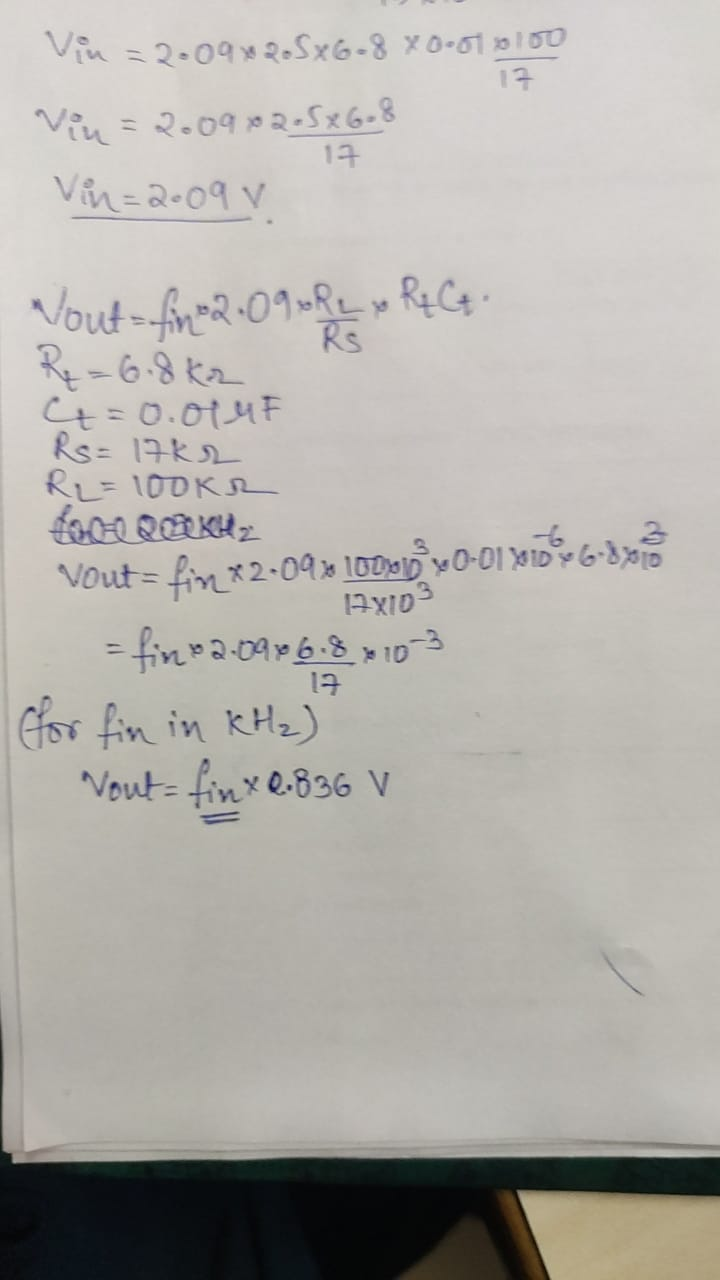 Vin = 2.09 x 2.5 x 6.8 x 0.01 x 100 / 17
Vin = 2.09 x 2.5 x 6.8 / 17
Vin = 2.09 V.
Vout = fin x 2.09 x RL / Rs x RtCt.
Rt = 6.8 KΩ
Ct = 0.01 µF
Rs = 17KΩ
RL = 100KΩ
Vout = fin x 2.09 x 100x10³ / 17x10³ x 0.01 x 10⁻⁶ x 6.8 x 10³
= fin x 2.09 x 6.8 / 17 x 10⁻³
(for fin in KHz)
Vout = fin x 0.836 V